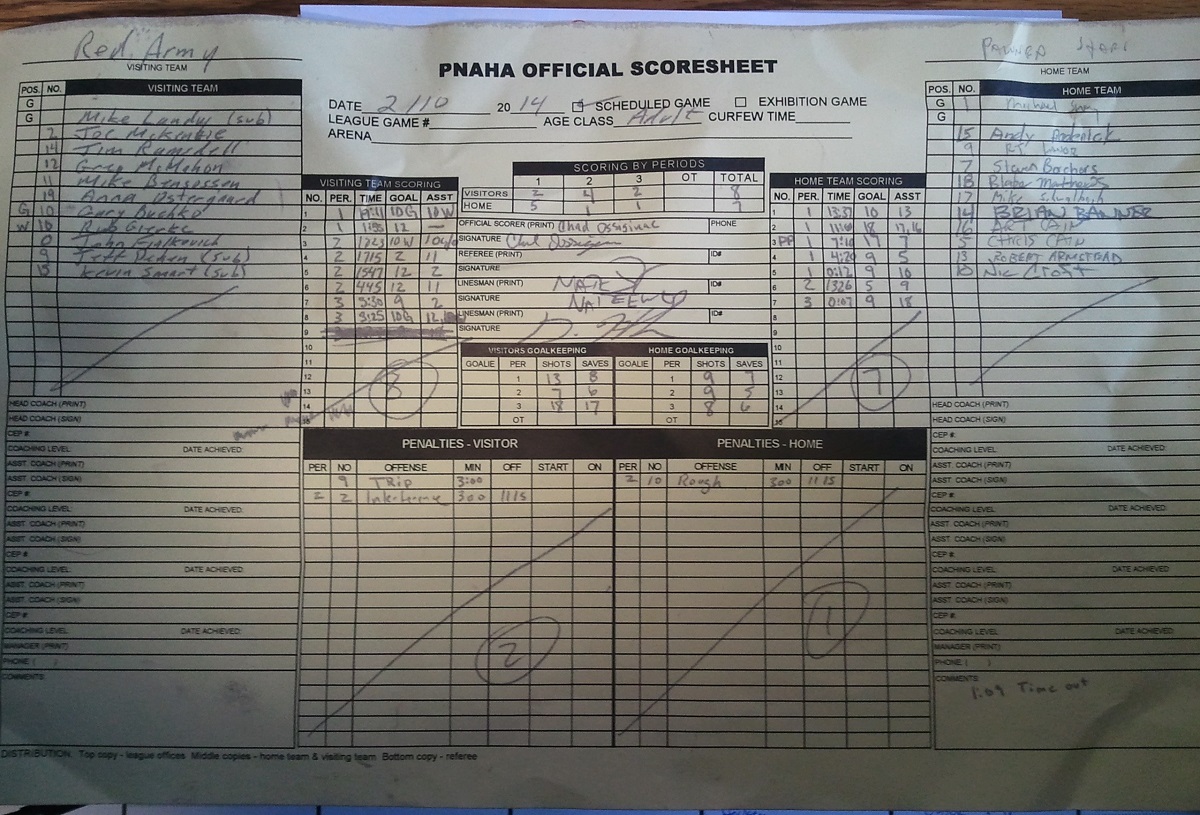 Red Army
VISITING TEAM
PNAHA OFFICIAL SCORESHEET
HOME TEAM
DATE 2/10 2014 SCHEDULED GAME EXHIBITION GAME
LEAGUE GAME # AGE CLASS Adult CURFEW TIME
ARENA
POS. NO. VISITING TEAM
G
G Mike Landy (sub)
2 Joe McKenzie
14 Tim Ramsdell
12 Greg McMahon
11 Mike
19 Anna Ostergaard
G 10 Gary
W 10 Rob
0 John Fialkovich
9 Jeff (sub)
15 Kevin Smart (sub)
HEAD COACH (PRINT)
HEAD COACH (SIGN)
CEP #
COACHING LEVEL DATE ACHIEVED:
ASST. COACH (PRINT)
ASST. COACH (SIGN)
CEP #
COACHING LEVEL: DATE ACHIEVED:
ASST. COACH (PRINT)
ASST. COACH (SIGN)
CEP #
COACHING LEVEL: DATE ACHIEVED:
ASST. COACH (PRINT)
ASST. COACH (SIGN)
CEP #
COACHING LEVEL: DATE ACHIEVED:
MANAGER (PRINT)
PHONE ( )
COMMENTS:
VISITING TEAM SCORING
NO. PER. TIME GOAL ASST
1 1 10G 10W
2 1 12 —
3 2 1723 10W
4 2 1715 2 11
5 2 1547 12 2
6 2 445 12 11
7 3 9:30 9 2
8 3 3:25 10G 12
9
10
11
12
13
14
15
8
SCORING BY PERIODS
1 2 3 OT TOTAL
VISITORS 2 4 2 8
HOME 5 1 1 7
OFFICIAL SCORER (PRINT) Chad PHONE
SIGNATURE
REFEREE (PRINT) ID#
SIGNATURE
LINESMAN (PRINT) ID#
SIGNATURE
LINESMAN (PRINT) ID#
SIGNATURE
VISITORS GOALKEEPING
GOALIE PER SHOTS SAVES
1 13 8
2 7 6
3 18 17
OT
HOME GOALKEEPING
GOALIE PER SHOTS SAVES
1 9 7
2 9 5
3 8 6
OT
HOME TEAM SCORING
NO. PER. TIME GOAL ASST
1 1 13:37 10 13
2 1 18 17,16
3 PP 1 7:10 17 7
4 1 4:20 9 5
5 1 0:12 9 10
6 2 1326 5 9
7 3 0:07 9 18
8
9
10
11
12
13
14
15
7
PENALTIES - VISITOR
PER NO OFFENSE MIN OFF START ON
9 TRip 3:00
2 2 Interference 300 1115
2
PENALTIES - HOME
PER NO OFFENSE MIN OFF START ON
2 10 Rough 300 1115
1
POS. NO. HOME TEAM
G 1 Michael
G
15 Andy
9 RJ
7 Shawn Borchers
18 Blake Matthews
17 Mike
14 BRIAN BANNER
16 ART CAIN
5 CHRIS CAIN
13 ROBERT ARMSTEAD
10 Nic Croft
HEAD COACH (PRINT)
HEAD COACH (SIGN)
CEP #:
COACHING LEVEL: DATE ACHIEVED:
ASST. COACH (PRINT)
ASST. COACH (SIGN)
CEP #:
COACHING LEVEL: DATE ACHIEVED:
ASST. COACH (PRINT)
ASST. COACH (SIGN)
CEP #:
COACHING LEVEL: DATE ACHIEVED:
ASST. COACH (PRINT)
ASST. COACH (SIGN)
CEP #:
COACHING LEVEL: DATE ACHIEVED:
MANAGER (PRINT)
PHONE ( )
COMMENTS:
1:09 Time out
DISTRIBUTION: Top copy - league offices Middle copies - home team & visiting team Bottom copy - referee